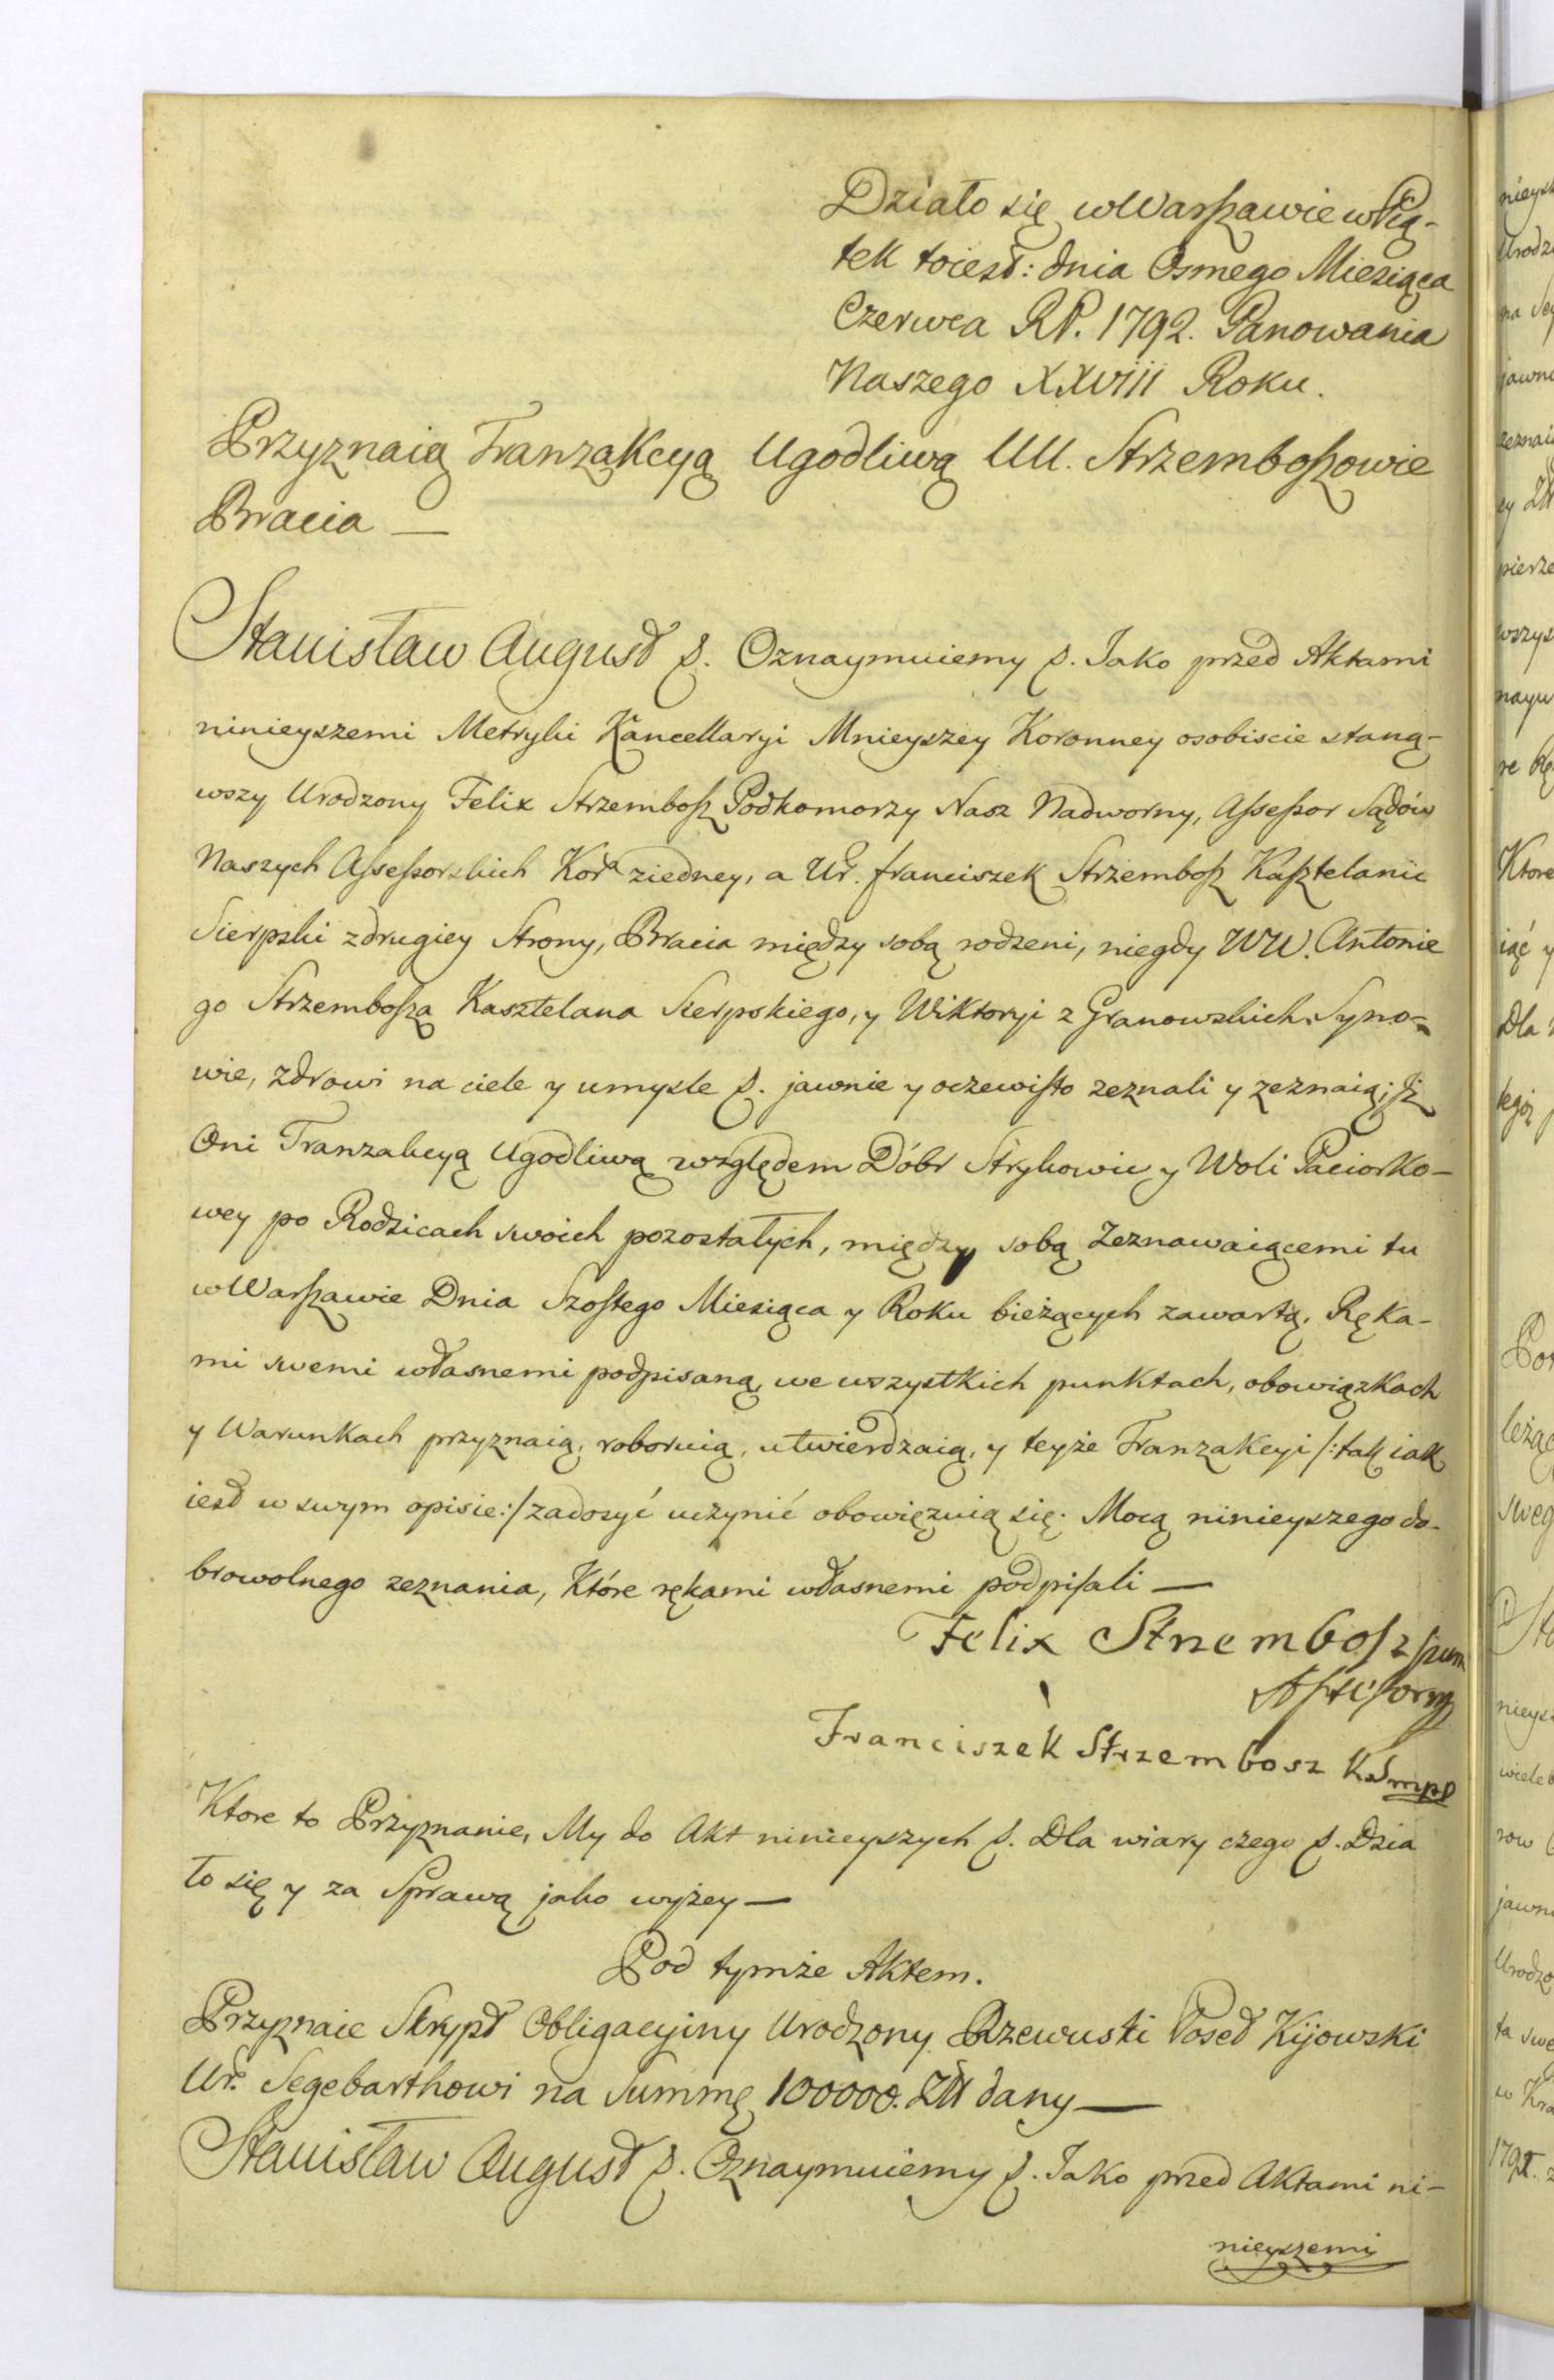 Działo się w Warszawie w Pią-
tek toiest: dnia Osmego Miesiąca
Czerwca RP. 1792. Panowania
Naszego XXVIII Roku.
Przyznaią Tranzakcyą Ugodliwą UU. Strzemboszowie
Bracia —
Stanisław August &. Oznaymuiemy &. Jako przed Aktami
ninieyszemi Metryki Kancellaryi Mnieyszey Koronney osobiscie staną-
wszy Urodzony Felix Strzembosz Podkomorzy Nasz Nadworny, Assessor Sądów
Naszych Assessorskich Kor. ziedney, a Ur. franciszek Strzembosz Kasztelanic
Sierpski zdrugiey Strony, Bracia między sobą rodzeni, niegdy WW. Antonie
go Strzembosza Kasztelana Sierpskiego, y Wiktoryi z Granowskich Syno-
wie, zdrowi na ciele y umysle &. jawnie y oczewisto zeznali y zeznaią; Jż
Oni Tranzakcyą Ugodliwą względem Dóbr Strykowic y Woli Paciorko-
wey po Rodzicach swoich pozostałych, między sobą Zeznawaiącemi tu
w Warszawie Dnia Szostego Miesiąca y Roku bieżących zawartą, Ręka-
mi swemi własnemi podpisaną, we wszystkich punktach, obowiązkach
y Warunkach przyznaią, roboruią, utwierdzaią, y teyże Tranzakcyi /:tak iak
iest w swym opisie:/ zadosyć uczynić obowięzuią się. Mocą ninieyszego do-
browolnego zeznania, Które rękami własnemi podpisali —
Felix Strzembosz
Franciszek Strzembosz KS mpp
Ktore to Przyznanie, My do Akt ninieyszych &. Dla wiary czego &. Dzia
ło się y za Sprawą jako wyżey —
Pod tymże Aktem.
Przyznaie Skrypt Obligacyiny Urodzony Rzewuski Poseł Kijowski
Ur. Segebarthowi na Summę 100000. Złł dany —
Stanisław August &. Oznaymuiemy &. Jako przed Aktami ni-
nieyszemi